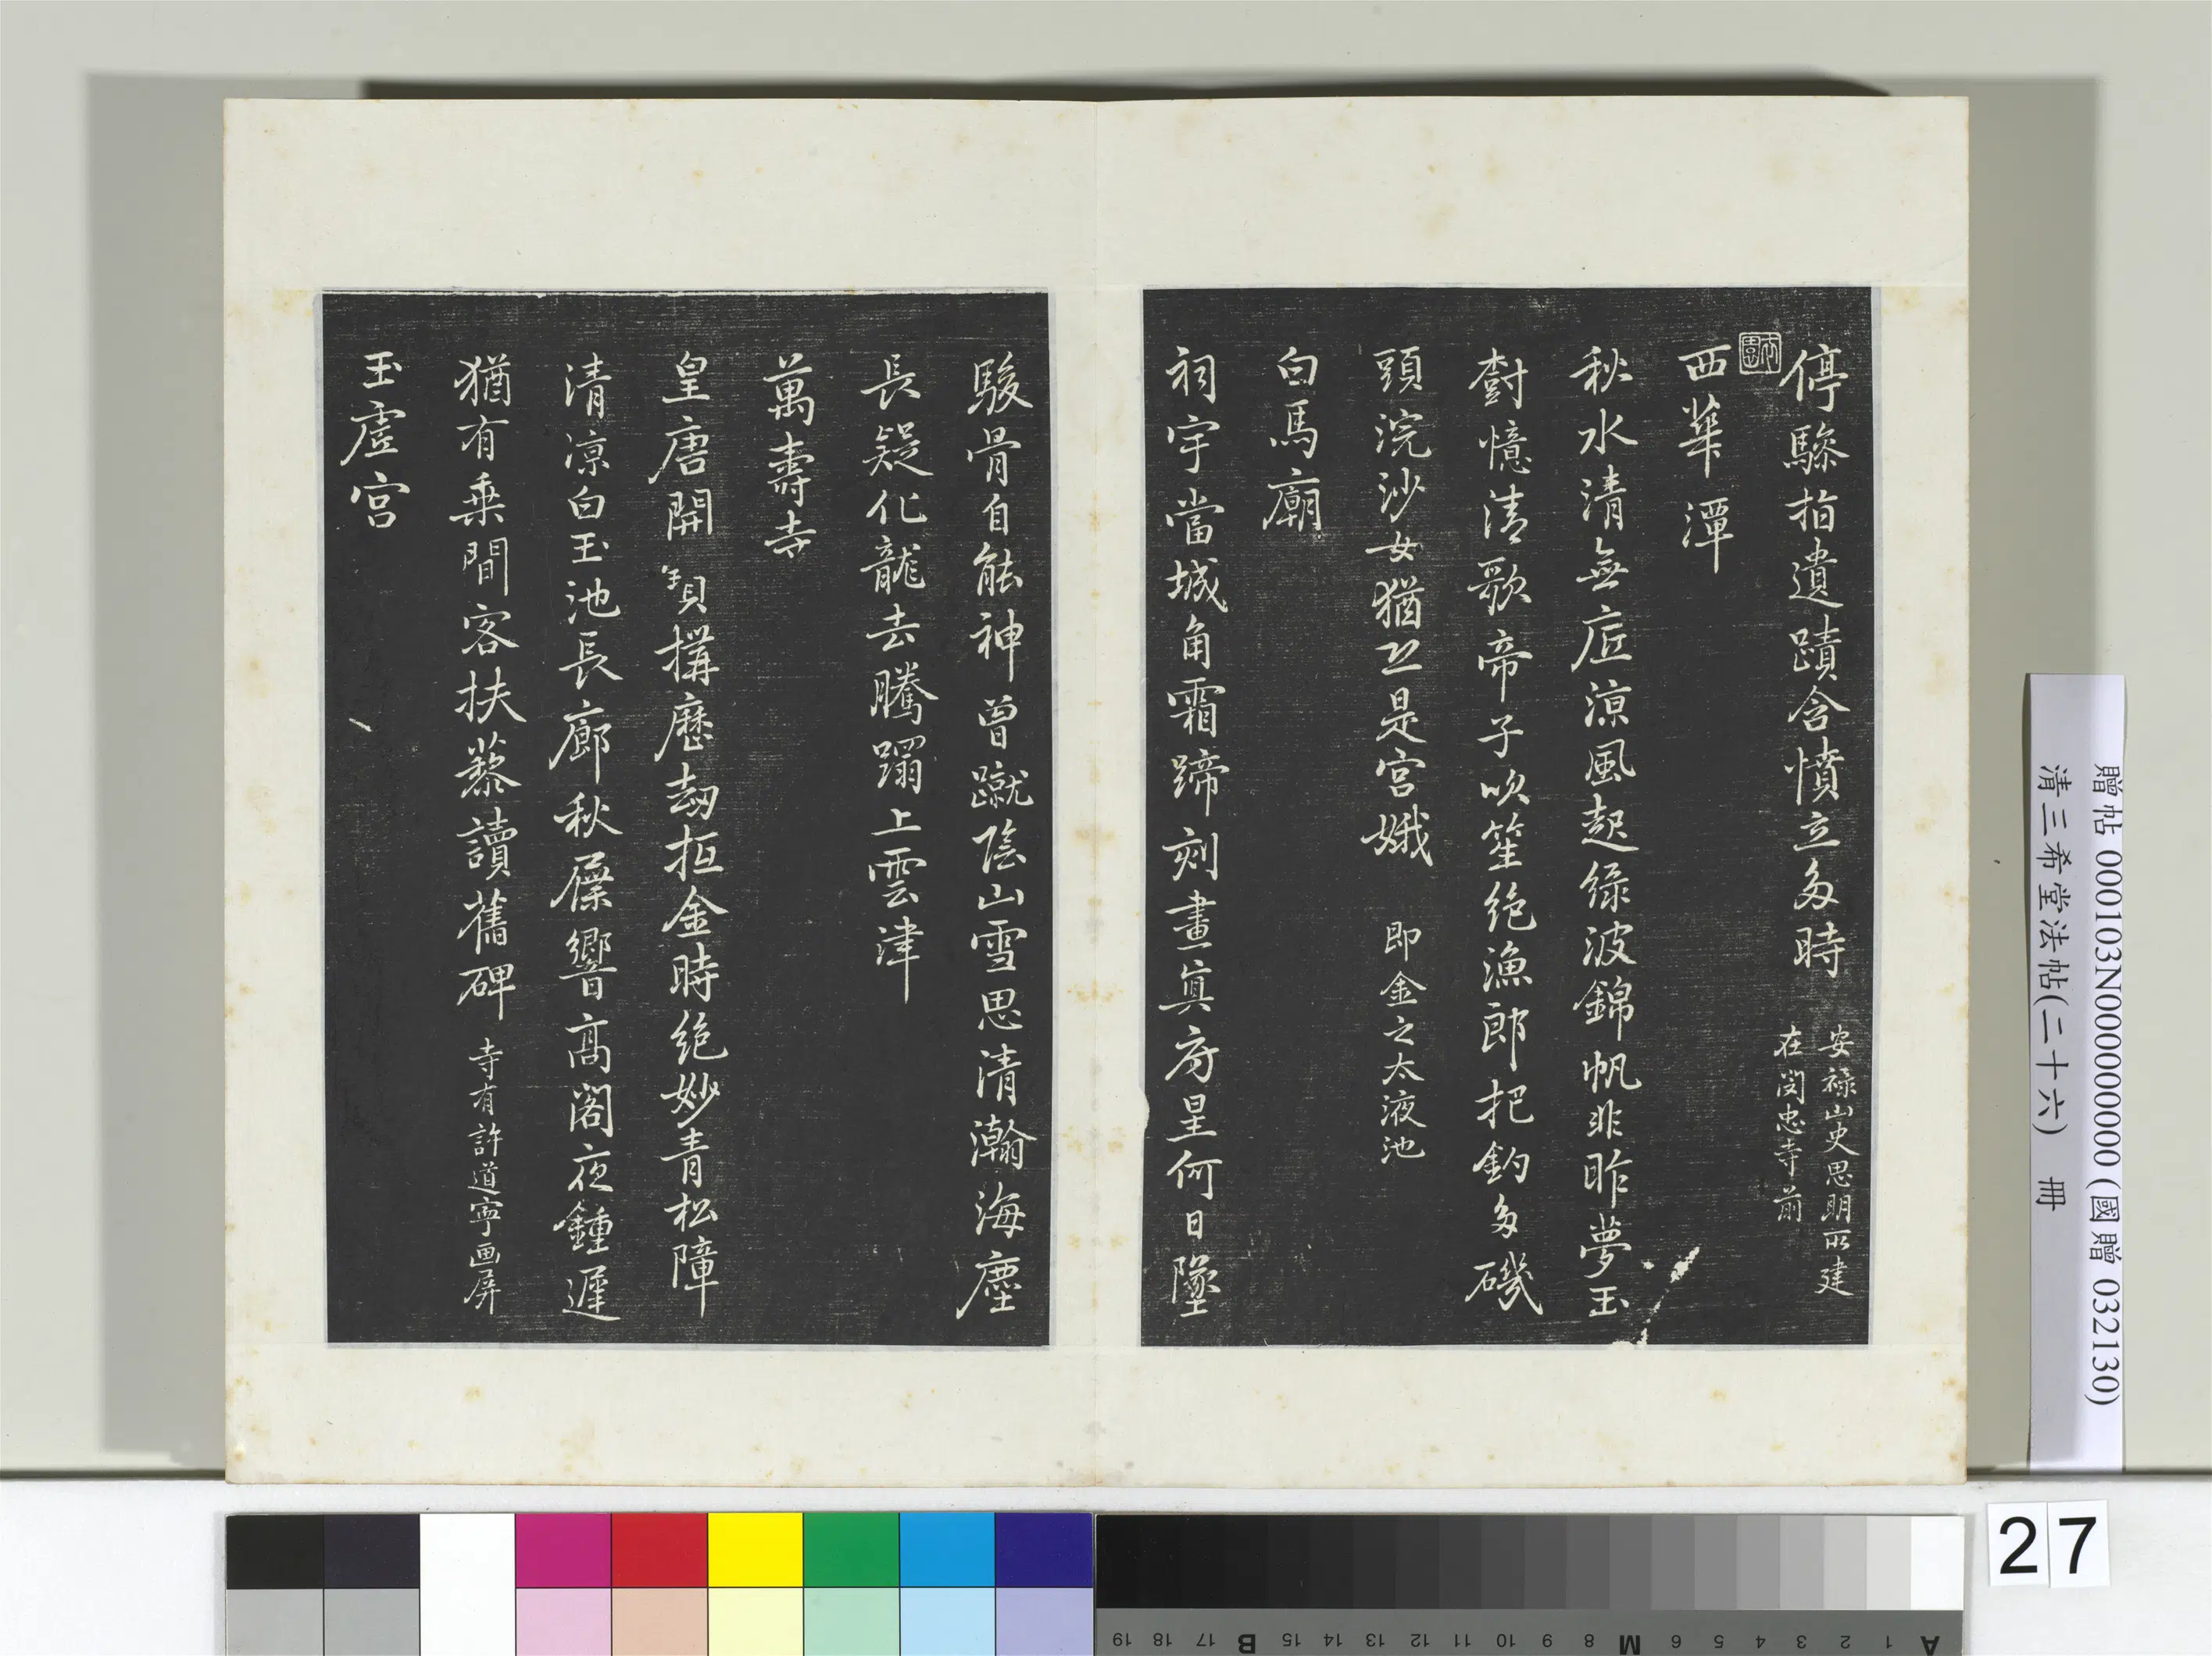 停驂指遺蹟含憤立多時 安禄山史思明所建
在閔忠寺前
西華潭
秋水清無底涼風起綠波錦帆非昨夢玉
樹憶清歌帝子吹笙绝漁郎把釣多磯
頭浣沙女猶恐是宮娥 即金之太液池
白馬廟
祠宇當城角霜蹄刻畫真房星何日墜
駿骨自能神曾蹴陰山雪思清瀚海塵
長疑化龍去騰躡上雲津
萬壽寺
皇唐開寶構歷劫抵金時绝妙青松障
清凉白玉池長廊秋屧響高閣夜鍾遲
猶有乗閒客扶藜讀舊碑 寺有許道寧画屏
玉虛宮
贈帖 000103N000000000 (國贈 032130)
清三希堂法帖(二十六) 冊
27
A 1 2 3 4 5 6 M 8 9 10 11 12 13 14 15 B 17 18 19